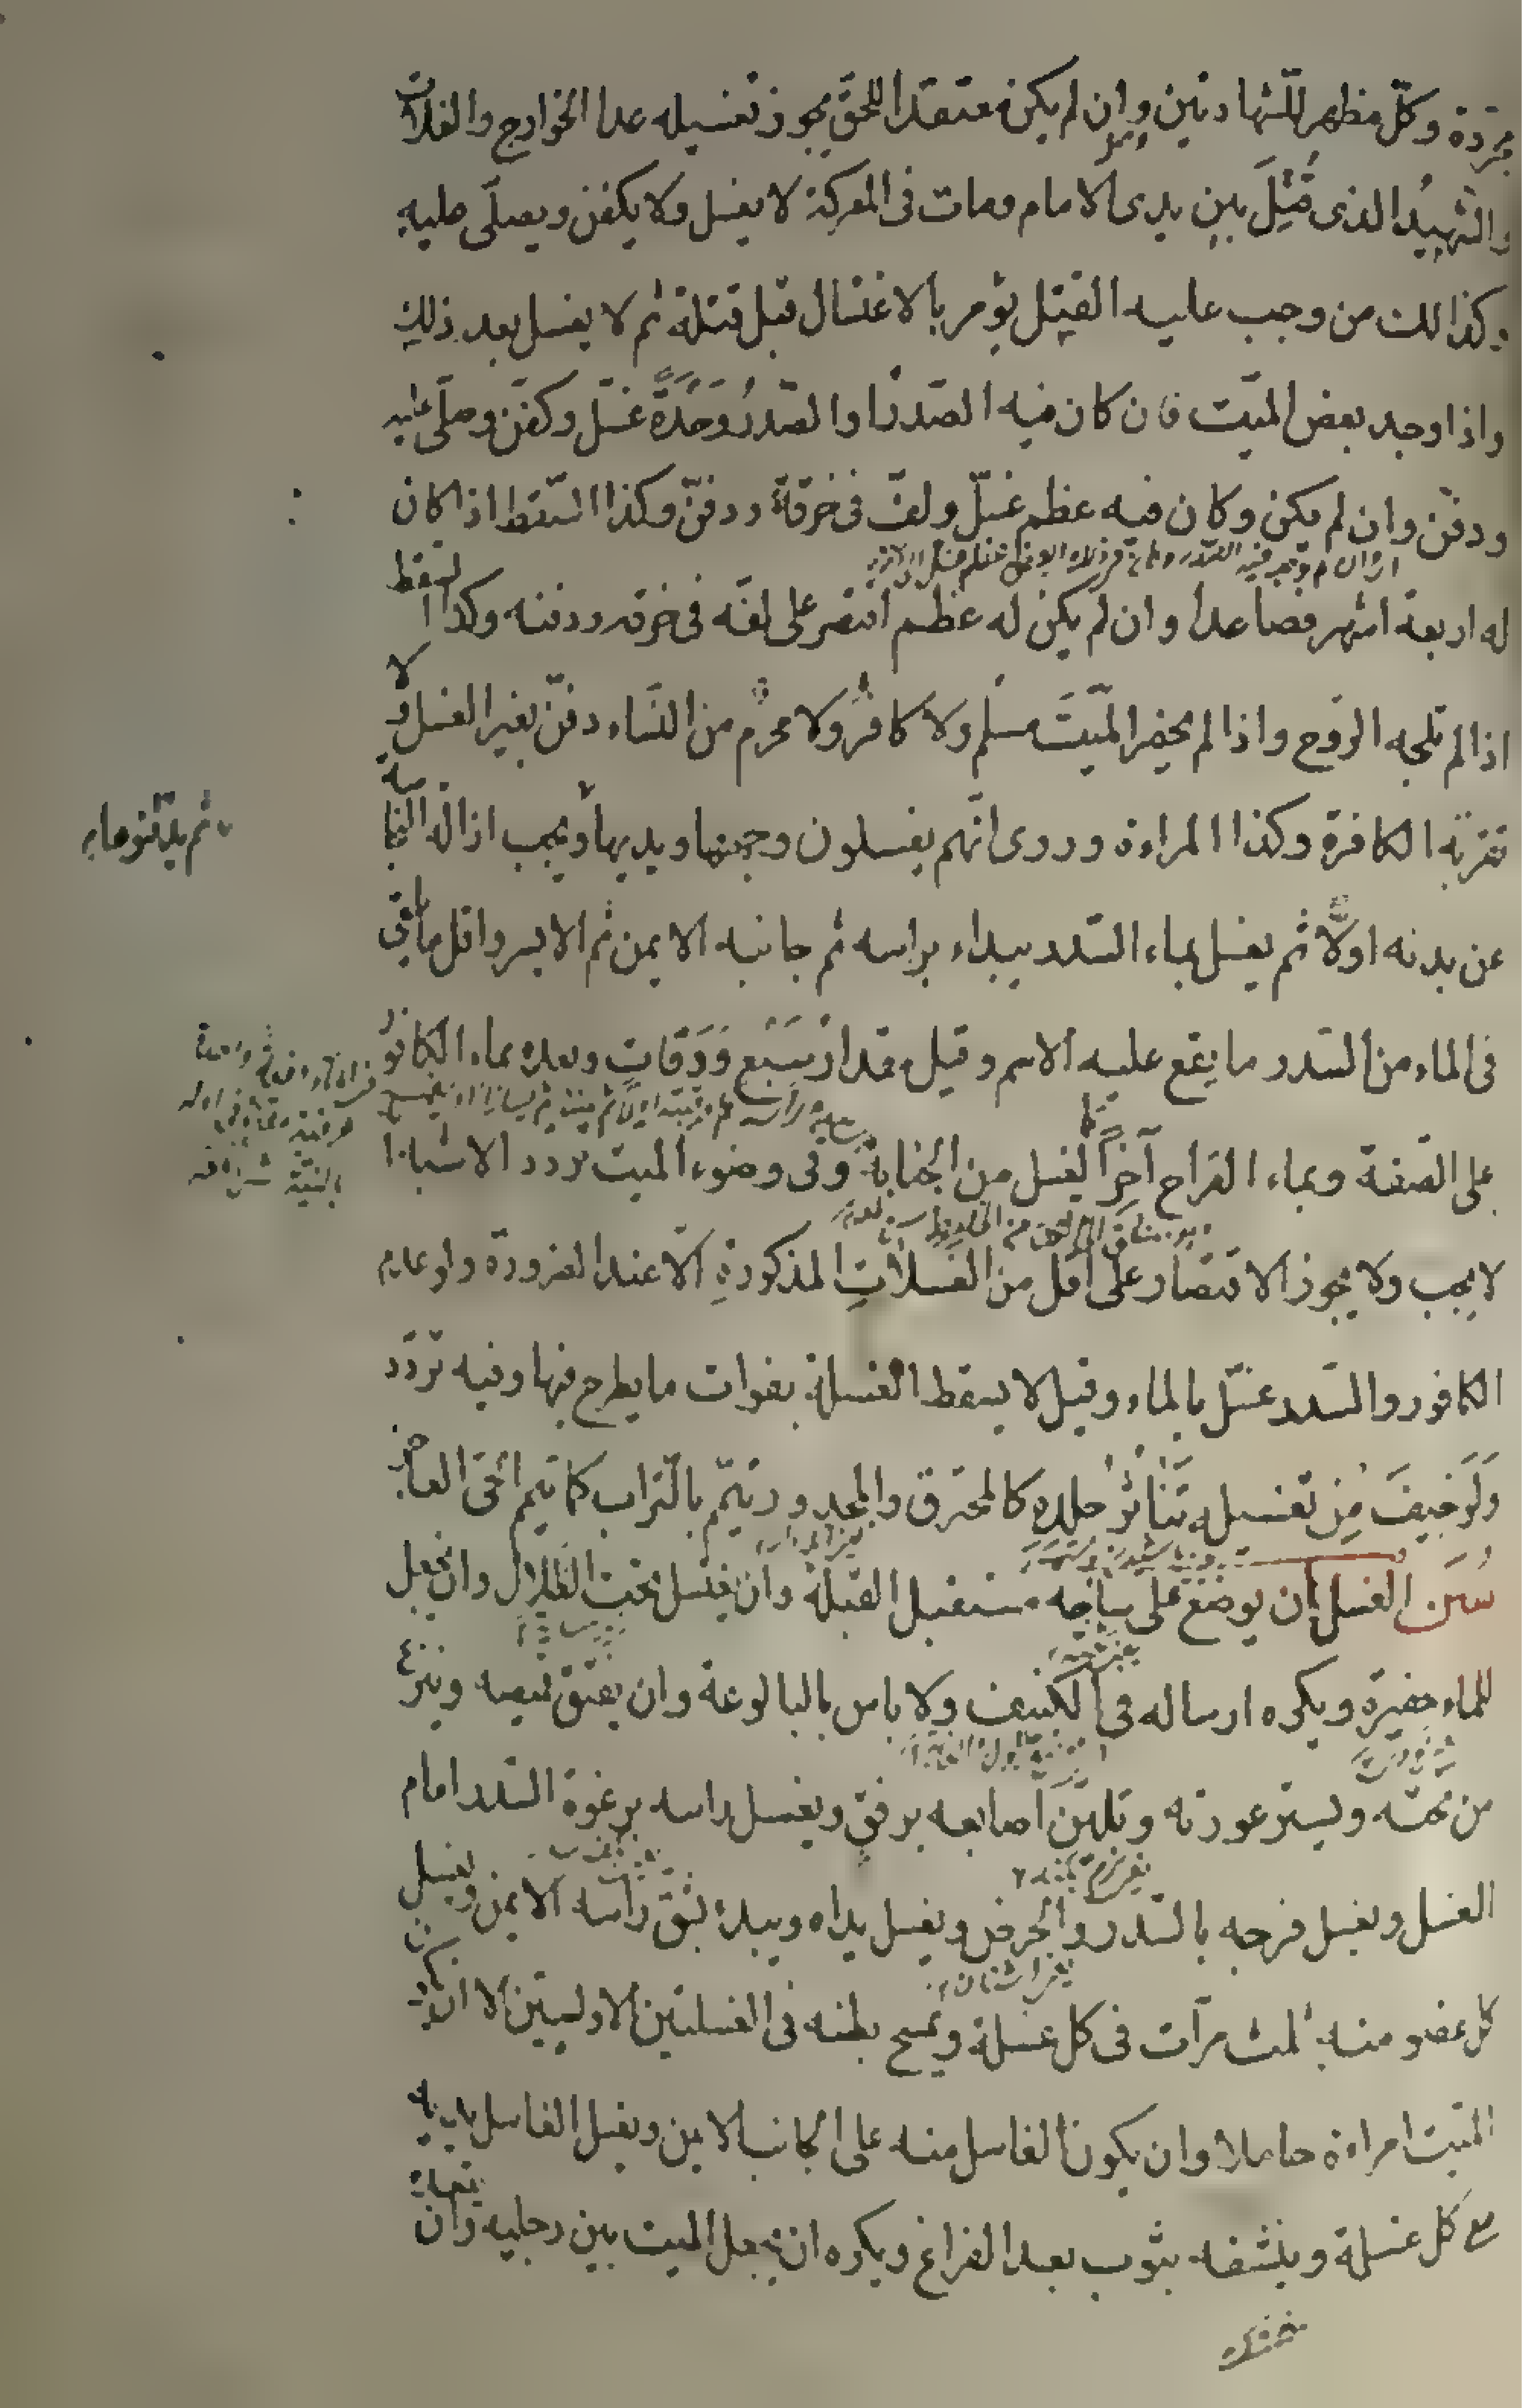 مجردة وكلّ مظهر للشهادتين وان لم يكن معتقدا للحقّ يجوز تغسيله عدا الخوارج والغلاة
والشهيدُ الذى قُتِلَ بين يدى الامام ومات فى المعركة لا يغسل ولا يكفن ويصلّى عليه
وكذالك من وجب عليه القتل يؤمر بالاغتسال قبل قتلة ثم لا يغسل بعد ذلك
واذا وجد بعض الميّت فان كان فيه الصّدر او الصّدرُ وَحْدَهُ غسّل وكفّن وصلّى عليه
ودفّن وان لم يكن وكان فيه عظم غسّل ولفّ فى خرقة ودفنّ وكذا السّقط اذا كان
له اربعة اشهر فصاعدا وان لم يكن له عظم اقتصر على لفّه فى خرقه ودفنه وكذا السقط
اذا لم تلجه الروح واذا لم يحضر الميّتَ مسلم ولا كافرٌ ولا محرم من النّساء دفنّ بغير الغسل ولا
تقربّه الكافرة وكذا المراءة وروى انّهم يغسلون وجهها ويديها ويجب ازالة النجاسة
عن بدنه اولّا ثم يغسل بماء السّدر يبداء براسه ثم جانبه الايمن ثم الايسر واقل ما يلقى
فى الماء من السّدر ما يقع عليه الاسم وقيل مقدار سَبْع وَرَقاتٍ وبعده بماء الكافور
على الصّفة وبماء القراح آخِراً كما لغسل من الجنابة وفى وضوء الميت تردد الاشبه انا
لا يجب ولا يجوز الاقتصار على اقل من الغسلاتِ المذكورةِ الّا عند الضرورة ولو عدم
الكافور والسّدر غسّل بالماء وقيل لا يسقط الغسلة بفوات ما يطرح فيها وفيه تردّد
وَلَو خيفَ مِن تغسيله تَنَاثُرُ جلدهِ كالمحترق والمجدور تيمّم بالتّراب كما تيمم الحىّ العاجز
سُنَن الغسل ان يوضع على ساجه مستقبل القبلة وان يغسل تحت الظلال وان يجعل
للماء حفيرة ويكره ارساله فى الكنيف ولا باس بالبالوعة وان يفتق قميصه وينزع
من تحته ويستر عورته وتليّن اصابعه برفق ويغسل راسه برغوة السّدر امام
الغسل ويغسل فرجه بالسّدر والحرض ويغسل يداه ويبدء بشق رأسه الايمن ويغسل
كل عضو منه ثلث مرّات فى كل غسلة ويمسح بطنه فى الغسلتين الاوليين الا ان يكون
الميّت امراءة حاملا وان يكون الغاسل منه على الجانب الايمن ويغسل الغاسل يديه
مع كل غسلة وينشفه بثوب بعد الفراغ ويكره ان يجعل الميت بين رجليه وان يقعده